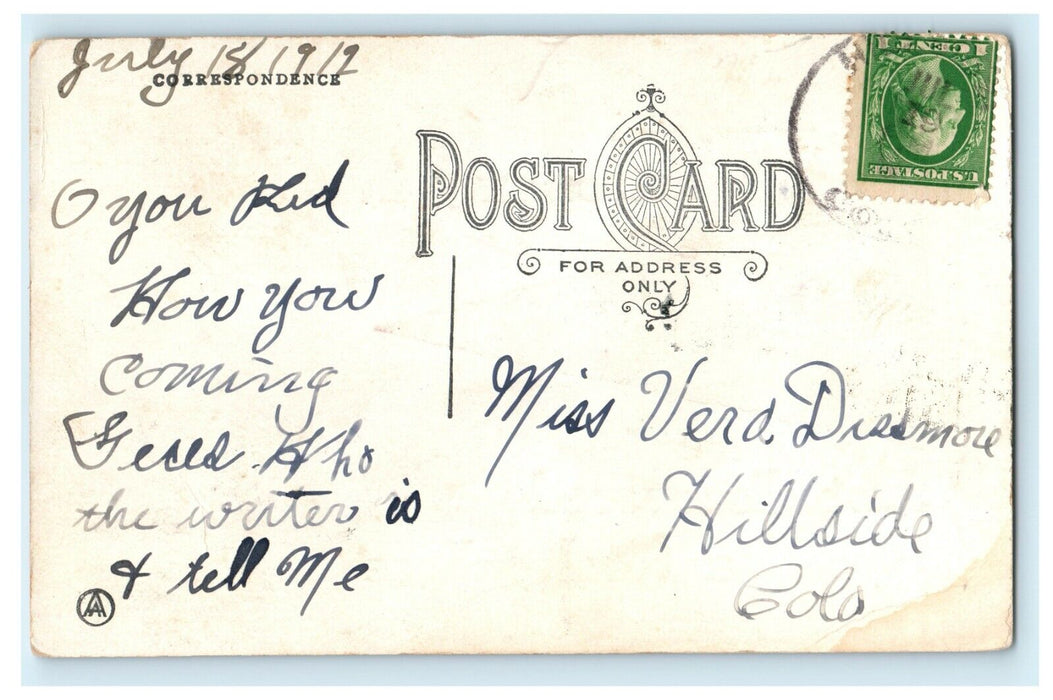 July 15/1912
CORRESPONDENCE
POST CARD
FOR ADDRESS
ONLY
1 CENT 1
U.S. POSTAGE
O you Kid
How you
Coming
Geces Who
the writer is
& tell Me
Miss Vera Dissmore
Hillside
Colo
AA